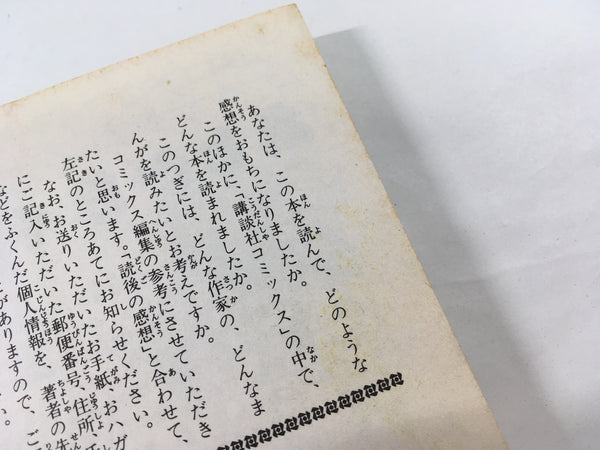 あなたは、この本を読んで、どのような
感想をおもちになりましたか。
このほかに、「講談社コミックス」の中で、
どんな本を読まれましたか。
このつぎには、どんな作家の、どんなま
んがを読みたいとお考えですか。
コミックス編集の参考にさせていただき
たいと思います。「読後の感想」と合わせて、
左記のところあてにお知らせください。
なお、お送りいただいたお手紙、おハガ
にご記入いただいた郵便番号、住所、
などをふくんだ個人情報を、著者の先
がありますので、ご